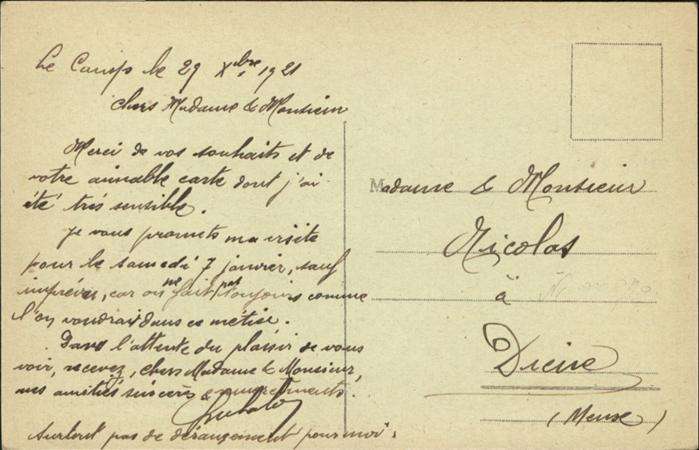 Le Camp le 29 Xbre 1921
chers Madame & Monsieur
Merci de vos souhaits et de
votre aimable carte dont j'ai
été très sensible.
Je vous promets ma visite
pour le samedi 7 janvier, sauf
imprévu, car on ne fait pas toujours comme
l'on voudrait dans ce métier.
Dans l'attente du plaisir de vous
voir, recevez, chers Madame & Monsieur,
mes amitiés sincères &
Surtout pas de dérangement pour moi.
Madame & Monsieur
Nicolas
à
Dieue
(Meuse)